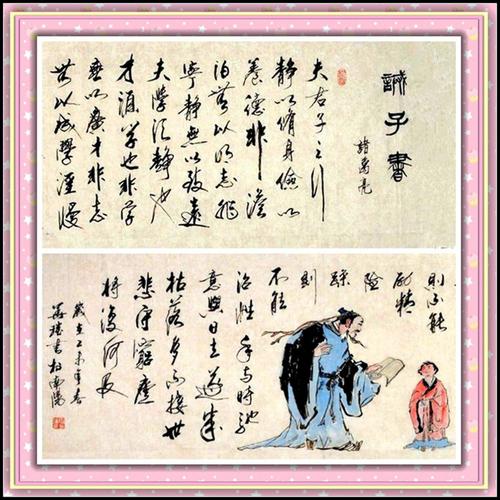 誡子書
諸葛亮
夫君子之行
静以修身儉以
養德非澹
泊無以明志非
寧静無以致遠
夫學須静也
才須學也非學
無以廣才非志
無以成學淫慢
則不能
勵精
險
躁
則
不能
治性年与時馳
意與日去遂成
枯落多不接世
悲守窮廬
將復何及
歲在乙未年春
書於南陽